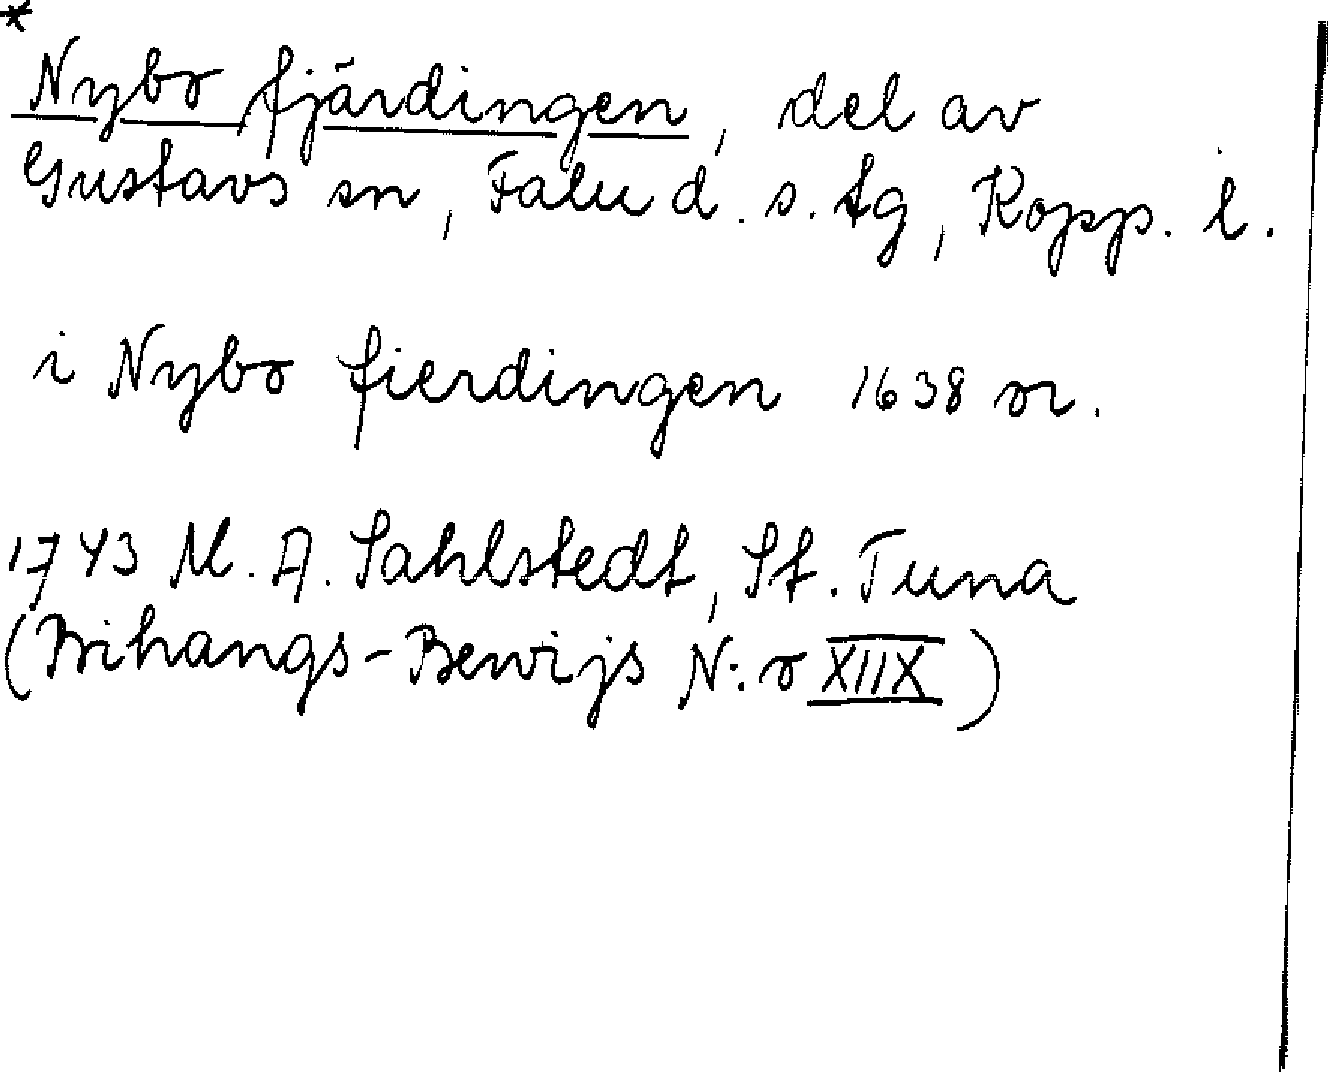 *
Nybo fjärdingen, del av
Gustavs sn, Falu d. s. tg, Kopp. l.
i Nybo fierdingen 1638 or.
1743 M. A. Sahlstedt, St. Tuna
(Bihangs-Bewijs N:o XIIX)